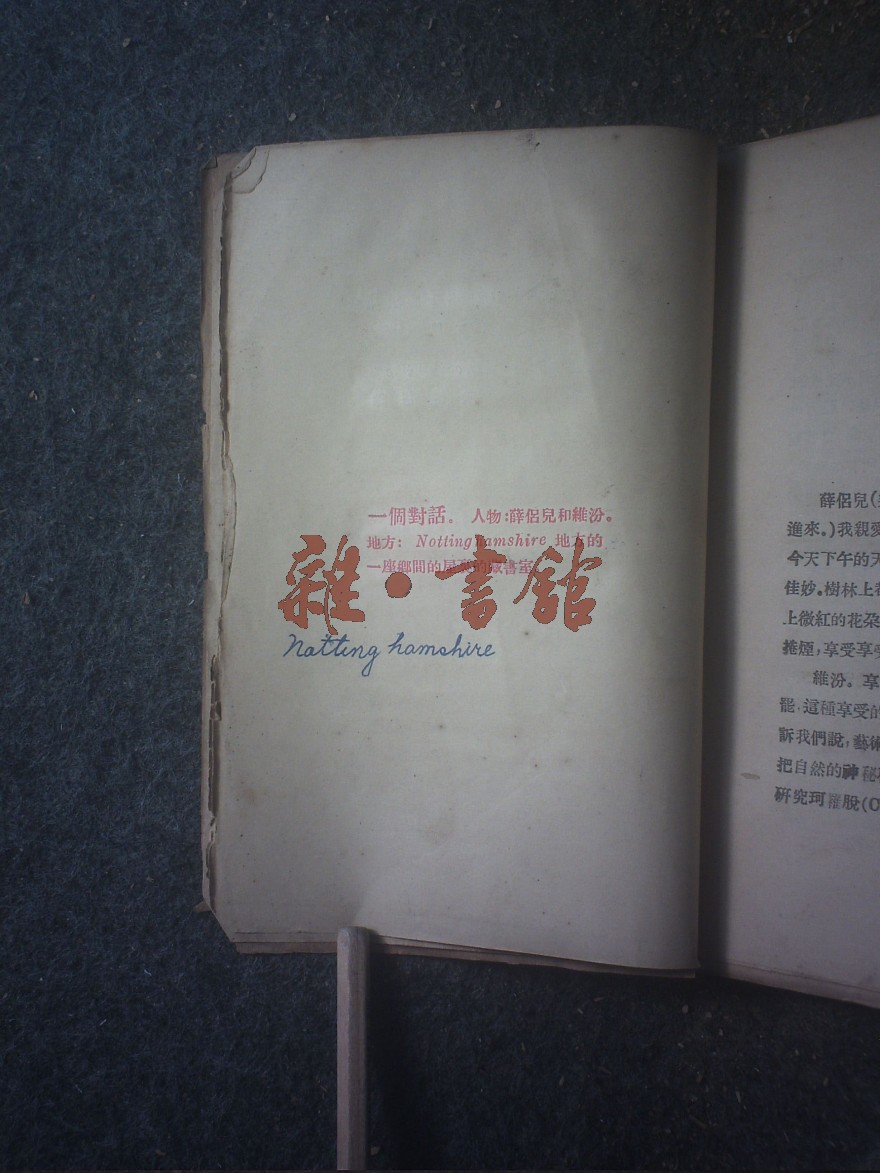 一個對話。 人物:薛侶兒和維汾。
地方: Nottinghamshire 地方的
一座鄉間的屋內的藏書室
雜·書館
Notting hamshire
薛侶兒(
進來。)我親愛
今天下午的天
佳妙。樹林上
上微紅的花朶
捲煙,享受享受
維汾。享
罷,這種享受的
訴我們說,藝術
把自然的神秘
研究珂羅脫(